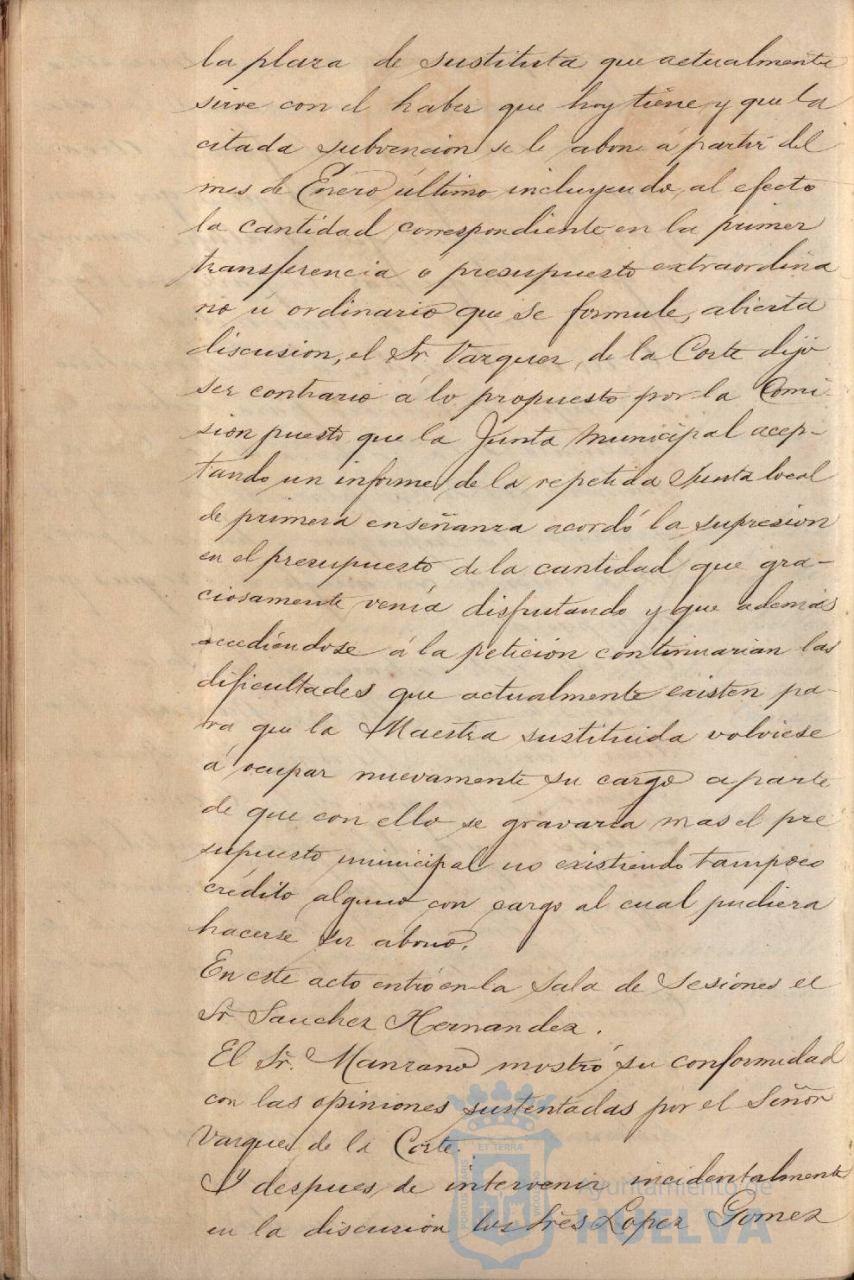 la plaza de sustituta que actualmente
sirve con el haber que hoy tiene y que la
citada subvencion se le abone á partir del
mes de Enero último incluyendo al efecto
la cantidad correspondiente en la primer
transferencia ó presupuesto extraordina
rio ú ordinario que se formule, abierta
discusion, el Sr Vazquez de la Corte dijo
ser contrario á lo propuesto por la Comi
sion puesto que la Junta Municipal acep-
tando un informe de la repetida Junta local
de primera enseñanza acordó la supresion
en el presupuesto de la cantidad que gra-
ciosamente venía disfrutando y que además
accediéndose á la petición continuarian las
dificultades que actualmente existen pa-
ra que la Maestra sustituida volviese
á ocupar nuevamente su cargo aparte
de que con ello se gravaría mas el pre
supuesto municipal no existiendo tampoco
crédito alguno con cargo al cual pudiera
hacerse su abono.
En este acto entró en la Sala de Sesiones el
Sr Sanchez Hernandez.
El Sr. Manzano mostró su conformidad
con las opiniones sustentadas por el Señor
Vazquez de la Corte.
Y despues de intervenir incidentalmente
en la discusion los Sres Lopez Gomez
ET TERRÆ
Ayuntamiento de
HUELVA